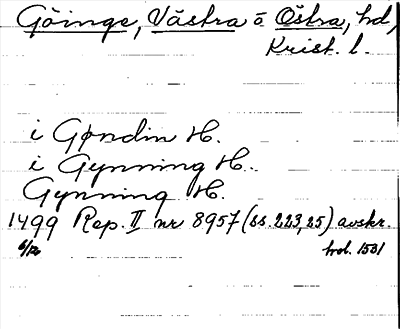 Göinge, Västra o Östra, hd,
Krist. l.
i Gøndin H.
i Gynning H.
Gynning H.
1499 Rep. II nr 8957 (ss. 223, 25) avskr.
6/12 hvd. 1501